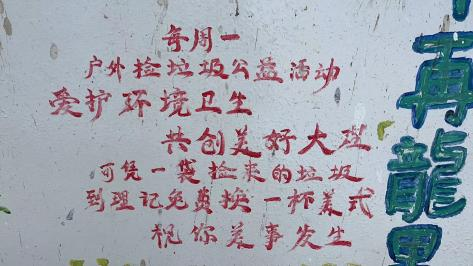 每周一
户外捡垃圾公益活动
爱护环境卫生
共创美好大理
可凭一袋捡来的垃圾
到理记免费换一杯美式
祝你美事发生
再龍